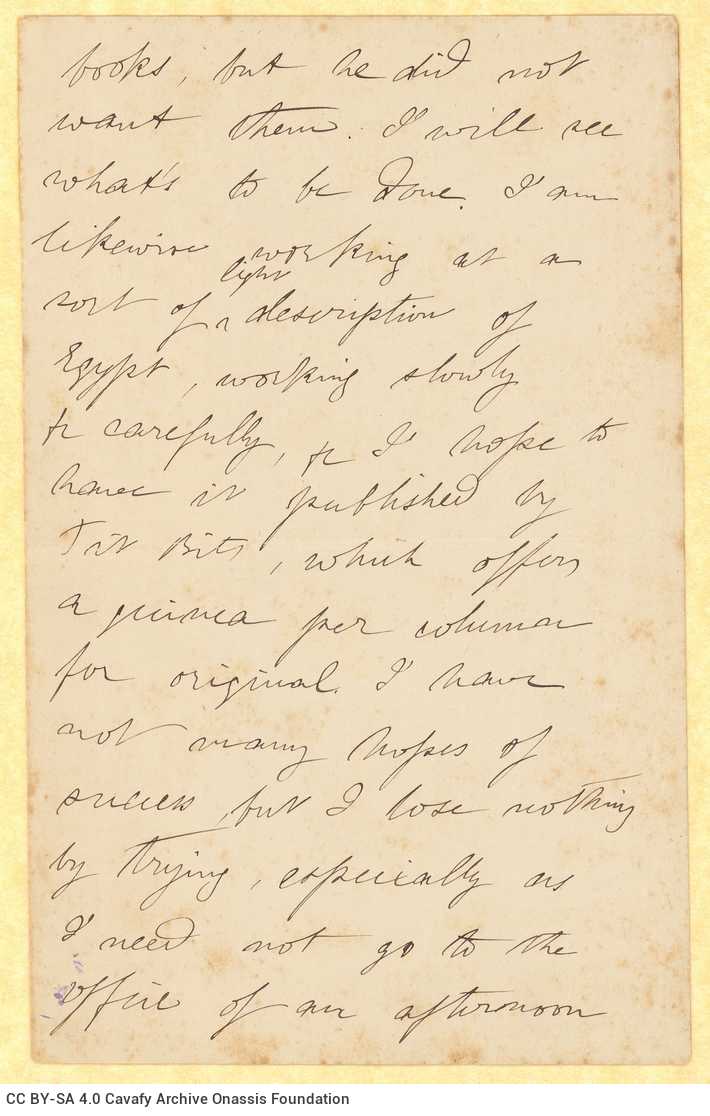 books, but he did not
want them. I will see
what's to be done. I am
likewise working at a
light
sort of ‸ description of
Egypt, working slowly
& carefully, & I hope to
have it published by
Tit Bits, which offers
a guinea per column
for original. I have
not many hopes of
success, but I lose nothing
by trying, especially as
I need not go to the
office of an afternoon
CC BY-SA 4.0 Cavafy Archive Onassis Foundation